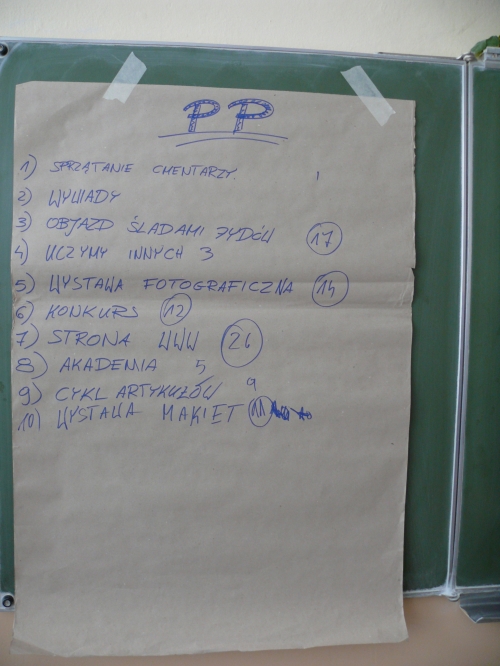 PP
1) SPRZĄTANIE CMENTARZY. 1
2) WYWIADY
3) OBJAZD ŚLADAMI ŻYDÓW 17
4) UCZYMY INNYCH 3
5) WYSTAWA FOTOGRAFICZNA 14
6) KONKURS 12
7) STRONA WWW 26
8) AKADEMIA 5
9) CYKL ARTYKUŁÓW 9
10) WYSTAWA MAKIET 11